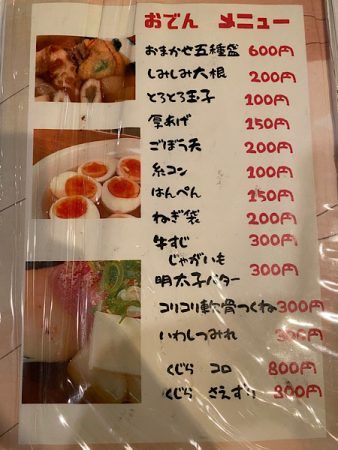 おでん メニュー
おまかせ五種盛 600円
しみしみ大根 200円
とろとろ玉子 100円
厚あげ 150円
ごぼう天 200円
糸コン 100円
はんぺん 150円
ねぎ袋 200円
牛すじ 300円
じゃがいも
明太子バター 300円
コリコリ軟骨つくね 300円
いわしつみれ 300円
くじら コロ 800円
くじら さえずり 800円